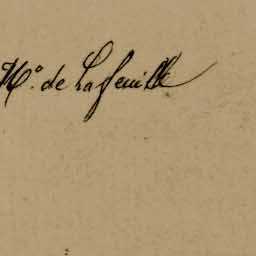 M.º de Lafeuille